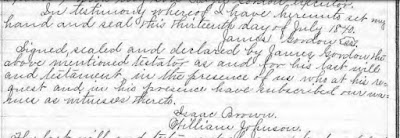 In testimony whereof I have hereunto set my
hand and seal this thirteenth day of July 1840.
James Gordon
Signed, sealed and declared by James Gordon the
above mentioned testator as and for his last will
and testament, in the presence of us who at his re-
quest and in his presence have subscribed our na-
mes as witnesses thereto.
Isaac Brown.
William Johnson.